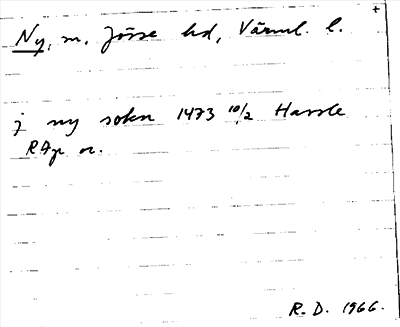 +
Ny, sn. Jösse hd, Värml. l.
j ny sokn 1473 10/2 Hassle
RAp or.
R. D. 1966.